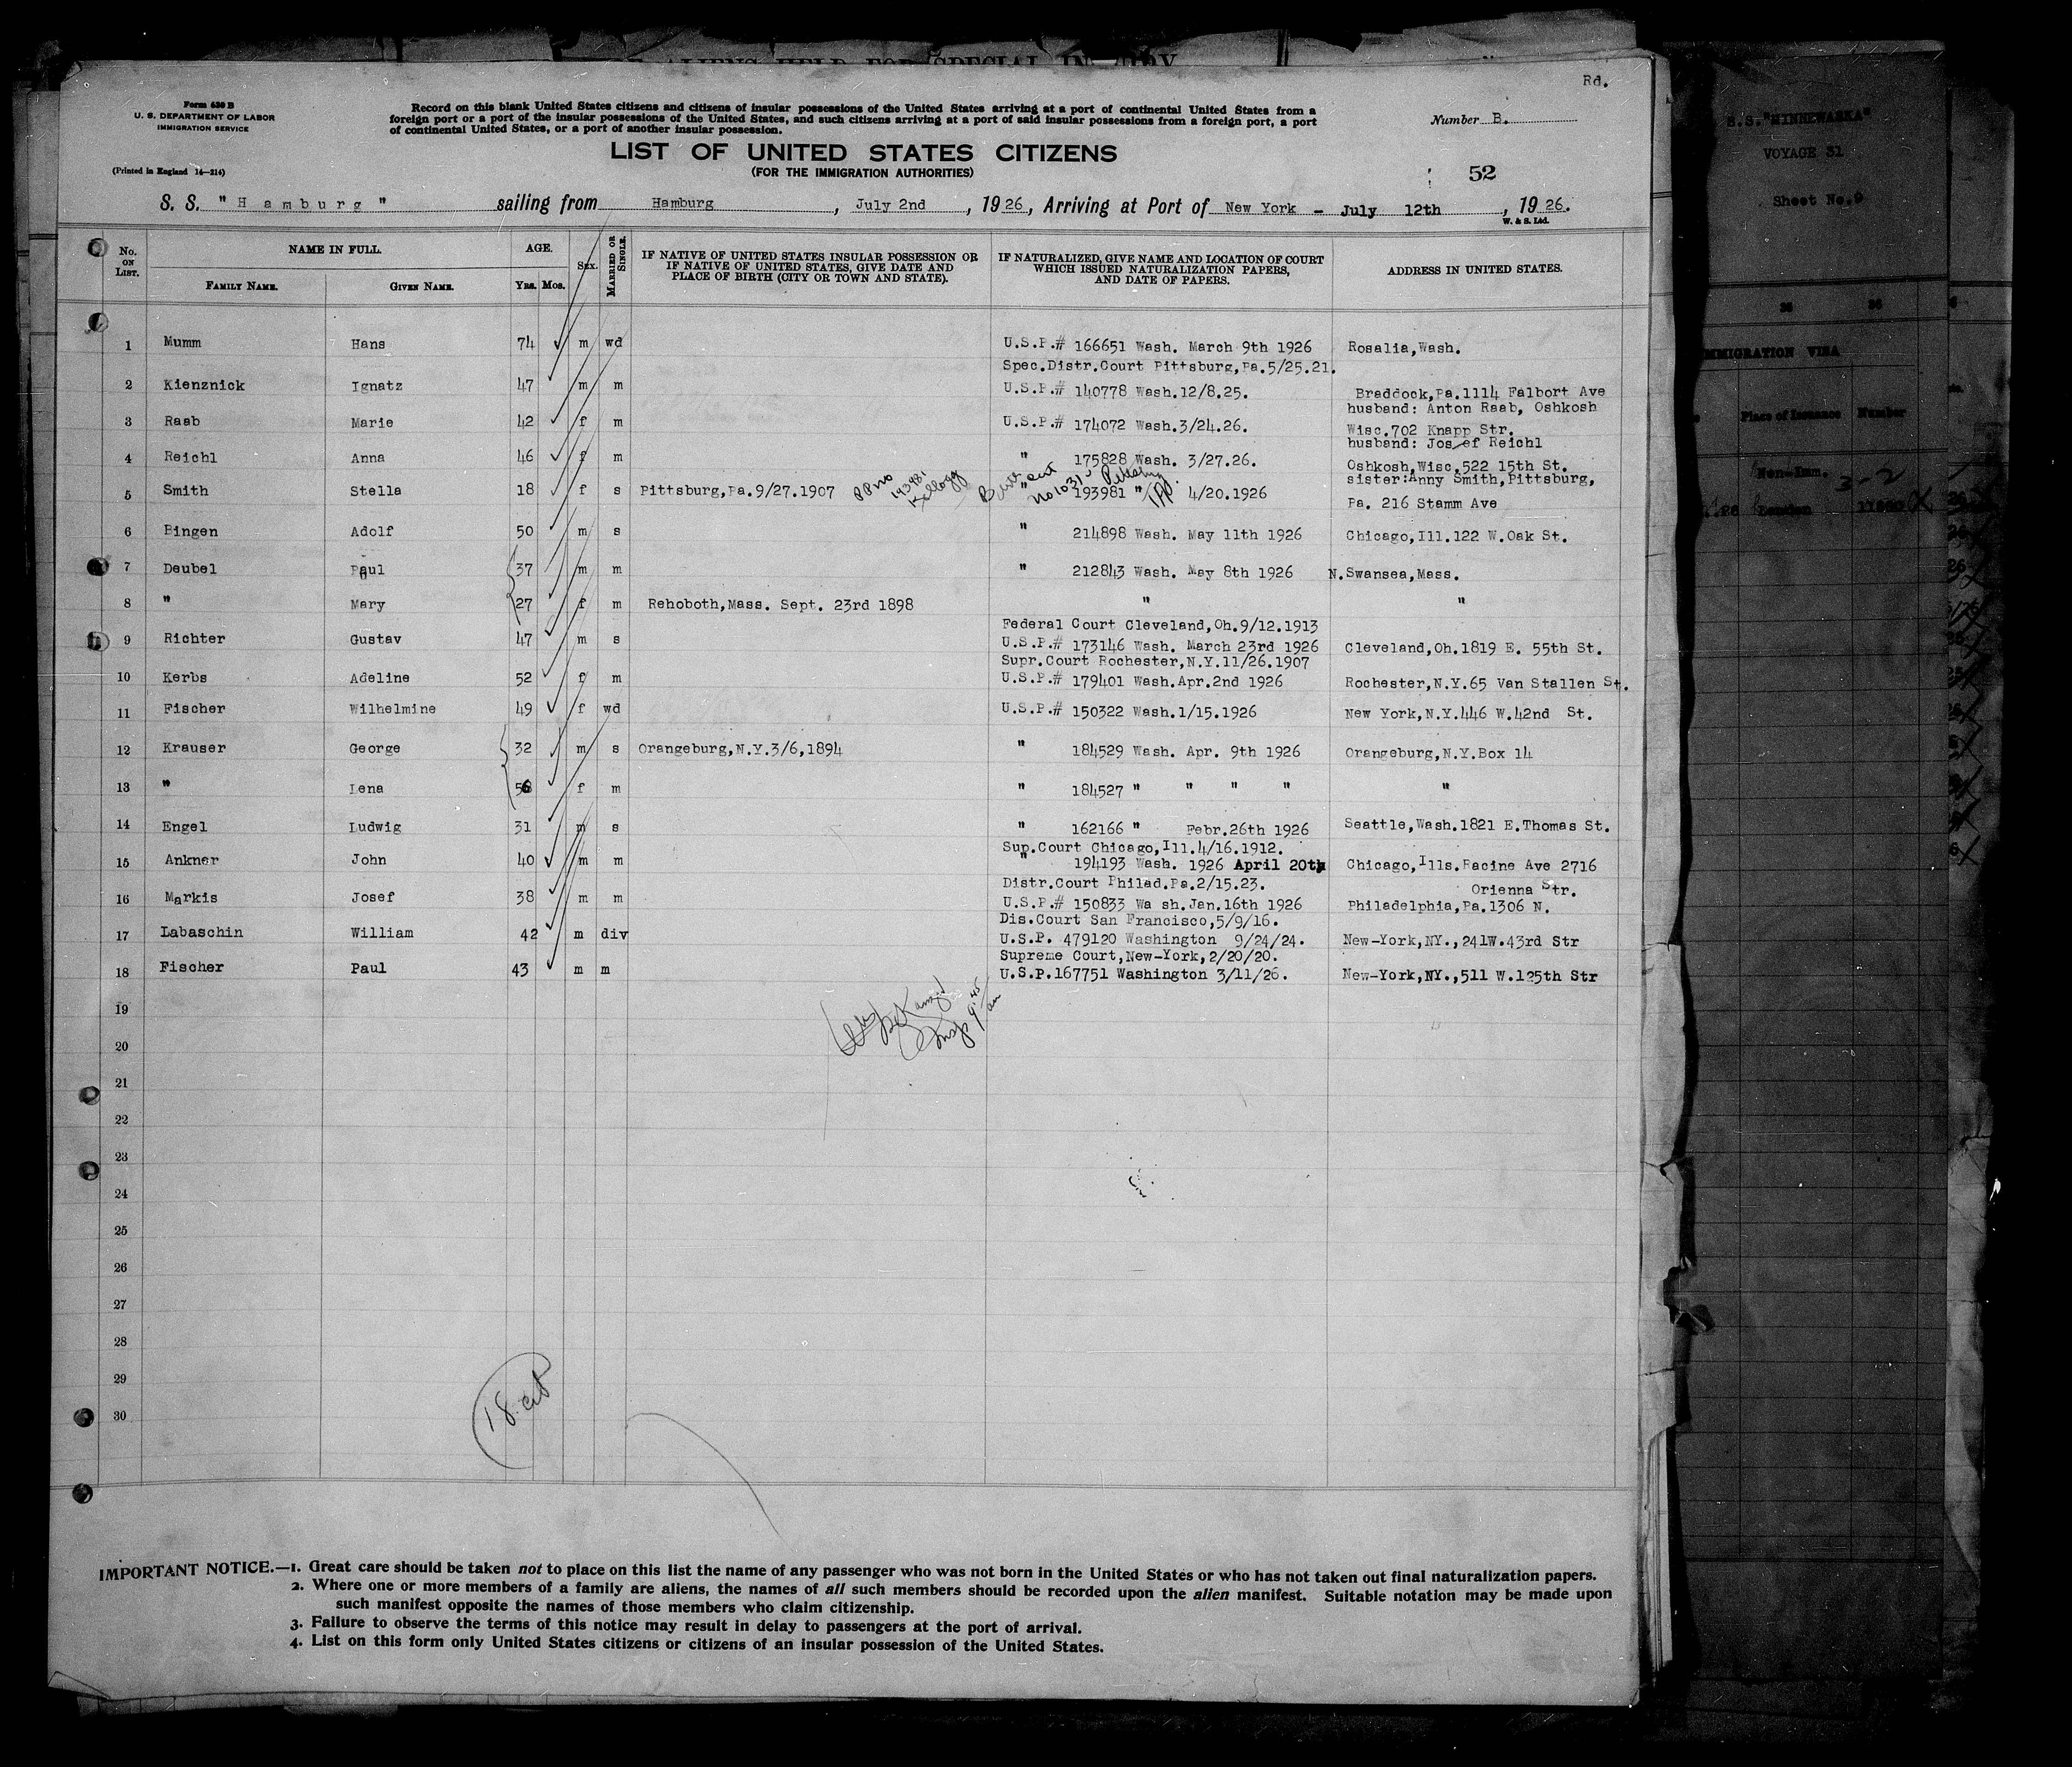 ALIENS HELD FOR SPECIAL IN
Rd.
Form 630 B
U. S. DEPARTMENT OF LABOR
IMMIGRATION SERVICE
(Printed in England 14—214)
Record on this blank United States citizens and citizens of insular possessions of the United States arriving at a port of continental United States from a
foreign port or a port of the insular possessions of the United States, and such citizens arriving at a port of said insular possessions from a foreign port, a port
of continental United States, or a port of another insular possession.
Number B.
LIST OF UNITED STATES CITIZENS
(FOR THE IMMIGRATION AUTHORITIES)
52
S. S. "Hamburg" sailing from Hamburg, July 2nd, 1926, Arriving at Port of New York - July 12th, 1926.
W. & S. Ltd.
No. ON LIST. NAME IN FULL. FAMILY NAME. GIVEN NAME. AGE. YRS. MOS. SEX. MARRIED OR SINGLE. IF NATIVE OF UNITED STATES INSULAR POSSESSION OR IF NATIVE OF UNITED STATES, GIVE DATE AND PLACE OF BIRTH (CITY OR TOWN AND STATE). IF NATURALIZED, GIVE NAME AND LOCATION OF COURT WHICH ISSUED NATURALIZATION PAPERS, AND DATE OF PAPERS. ADDRESS IN UNITED STATES.
1 Mumm Hans 74 m wd U.S.P.# 166651 Wash. March 9th 1926 Rosalia,Wash.
Spec.Distr.Court Pittsburg,Pa.5/25.21.
2 Kienznick Ignatz 47 m m U.S.P.# 140778 Wash.12/8.25. Braddock,Pa.1114 Falbort Ave
husband: Anton Raab, Oshkosh
3 Raab Marie 42 f m U.S.P.# 174072 Wash.3/24.26. Wisc.702 Knapp Str.
husband: Josef Reichl
4 Reichl Anna 46 f m " 175828 Wash. 3/27.26. Oshkosh,Wisc,522 15th St.
sister:Anny Smith,Pittsburg,
5 Smith Stella 18 f s Pittsburg,Pa.9/27.1907 PP no 193981 Kellogg " 193981 " 4/20.1926
Pa. 216 Stamm Ave
6 Bingen Adolf 50 m s " 214898 Wash. May 11th 1926 Chicago,Ill.122 W.Oak St.
7 Deubel Paul 37 m m " 212843 Wash. May 8th 1926 N.Swansea,Mass.
8 " Mary 27 f m Rehoboth,Mass. Sept. 23rd 1898 " "
Federal Court Cleveland,Oh.9/12.1913
9 Richter Gustav 47 m s U.S.P.# 173146 Wash. March 23rd 1926 Cleveland,Oh.1819 E. 55th St.
Supr.Court Rochester,N.Y.11/26.1907
10 Kerbs Adeline 52 f m U.S.P.# 179401 Wash.Apr.2nd 1926 Rochester,N.Y.65 Van Stallen St.
11 Fischer Wilhelmine 49 f wd U.S.P.# 150322 Wash.1/15.1926 New York,N.Y.446 W.42nd St.
12 Krauser George 32 m s Orangeburg,N.Y.3/6,1894 " 184529 Wash. Apr. 9th 1926 Orangeburg,N.Y.Box 14
13 " Lena f m " 184527 " " " " "
14 Engel Ludwig 31 m s " 162166 " Febr.26th 1926 Seattle,Wash.1821 E.Thomas St.
Sup.Court Chicago,Ill.4/16.1912.
15 Ankner John 40 m m " 194193 Wash. 1926 April 20th Chicago,Ills.Racine Ave 2716
Distr.Court Philad.Pa.2/15.23. Orienna Str.
16 Markis Josef 38 m m U.S.P.# 150833 Wa sh.Jan.16th 1926 Philadelphia,Pa.1306 N.
Dis.Court San Francisco,5/9/16.
17 Labaschin William 42 m div U.S.P. 479120 Washington 9/24/24. New-York,NY.,241W.43rd Str
Supreme Court,New-York,2/20/20.
18 Fischer Paul 43 m m U.S.P.167751 Washington 3/11/26. New-York,NY.,511 W.125th Str
19
20
21
22
23
24
25
26
27
28
29
30
18 cit
IMPORTANT NOTICE.—1. Great care should be taken not to place on this list the name of any passenger who was not born in the United States or who has not taken out final naturalization papers.
2. Where one or more members of a family are aliens, the names of all such members should be recorded upon the alien manifest. Suitable notation may be made upon
such manifest opposite the names of those members who claim citizenship.
3. Failure to observe the terms of this notice may result in delay to passengers at the port of arrival.
4. List on this form only United States citizens or citizens of an insular possession of the United States.
S.S."MINNEWASKA"
VOYAGE 31
Sheet No.9
IMMIGRATION VISA
Place of Issuance Number
Non-Imm. 3-2
London